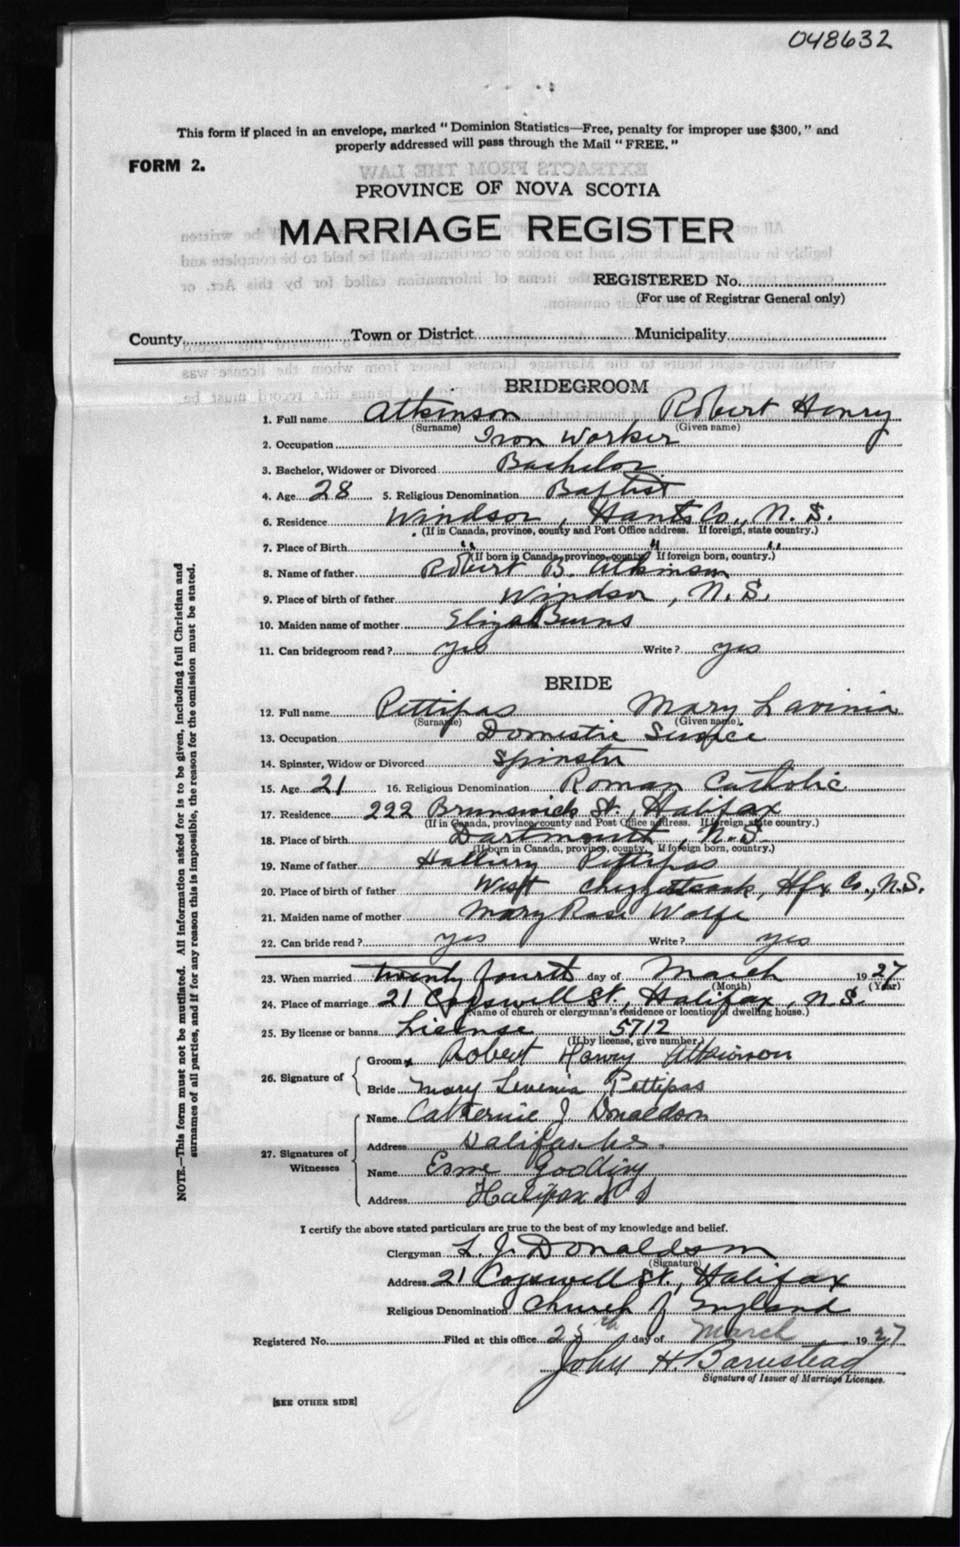 048632
This form if placed in an envelope, marked "Dominion Statistics—Free, penalty for improper use $300," and
properly addressed will pass through the Mail "FREE."
FORM 2.
PROVINCE OF NOVA SCOTIA
MARRIAGE REGISTER
REGISTERED No.
(For use of Registrar General only)
County Town or District Municipality
BRIDEGROOM
1. Full name Atkinson Robert Henry
(Surname) (Given name)
2. Occupation Iron Worker
3. Bachelor, Widower or Divorced Bachelor
4. Age 28 5. Religious Denomination Baptist
6. Residence Windsor, Hants Co., N.S.
(If in Canada, province, county and Post Office address. If foreign, state country.)
7. Place of Birth " " "
(If born in Canada, province, county. If foreign born, country.)
8. Name of father Robert B. Atkinson
9. Place of birth of father Windsor, N.S.
10. Maiden name of mother Eliza Burns
11. Can bridegroom read? yes Write? yes
BRIDE
12. Full name Pettipas Mary Lavinia
(Surname) (Given name)
13. Occupation Domestic Service
14. Spinster, Widow or Divorced Spinster
15. Age 21 16. Religious Denomination Roman Catholic
17. Residence 222 Brunswick St., Halifax
(If in Canada, province, county and Post Office address. If foreign, state country.)
18. Place of birth Dartmouth, N.S.
(If born in Canada, province, county. If foreign born, country.)
19. Name of father Pettipas
20. Place of birth of father West Chezzetcook, Hfx Co., N.S.
21. Maiden name of mother Mary Rose Wolfe
22. Can bride read? yes Write? yes
23. When married twenty fourth day of March 1927
(Month) (Year)
24. Place of marriage 21 Cogswell St., Halifax, N.S.
(Name of church or clergyman's residence or location of dwelling house.)
25. By license or banns License 5712
(If by license, give number)
26. Signature of
Groom Robert Henry Atkinson
Bride Mary Levenia Pettipas
27. Signatures of Witnesses
Name Catherine J Donaldson
Address Halifax N.S.
Name Esme Gooding
Address Halifax N S
I certify the above stated particulars are true to the best of my knowledge and belief.
Clergyman L. J. Donaldson
(Signature)
Address 21 Cogswell St., Halifax
Religious Denomination Church of England
Registered No. Filed at this office day of March 1927
John H. Barnstead
Signature of Issuer of Marriage Licenses.
[SEE OTHER SIDE]
NOTE.—This form must not be mutilated. All information asked for is to be given, including full Christian and
surnames of all parties, and if for any reason this is impossible, the reason for the omission must be stated.